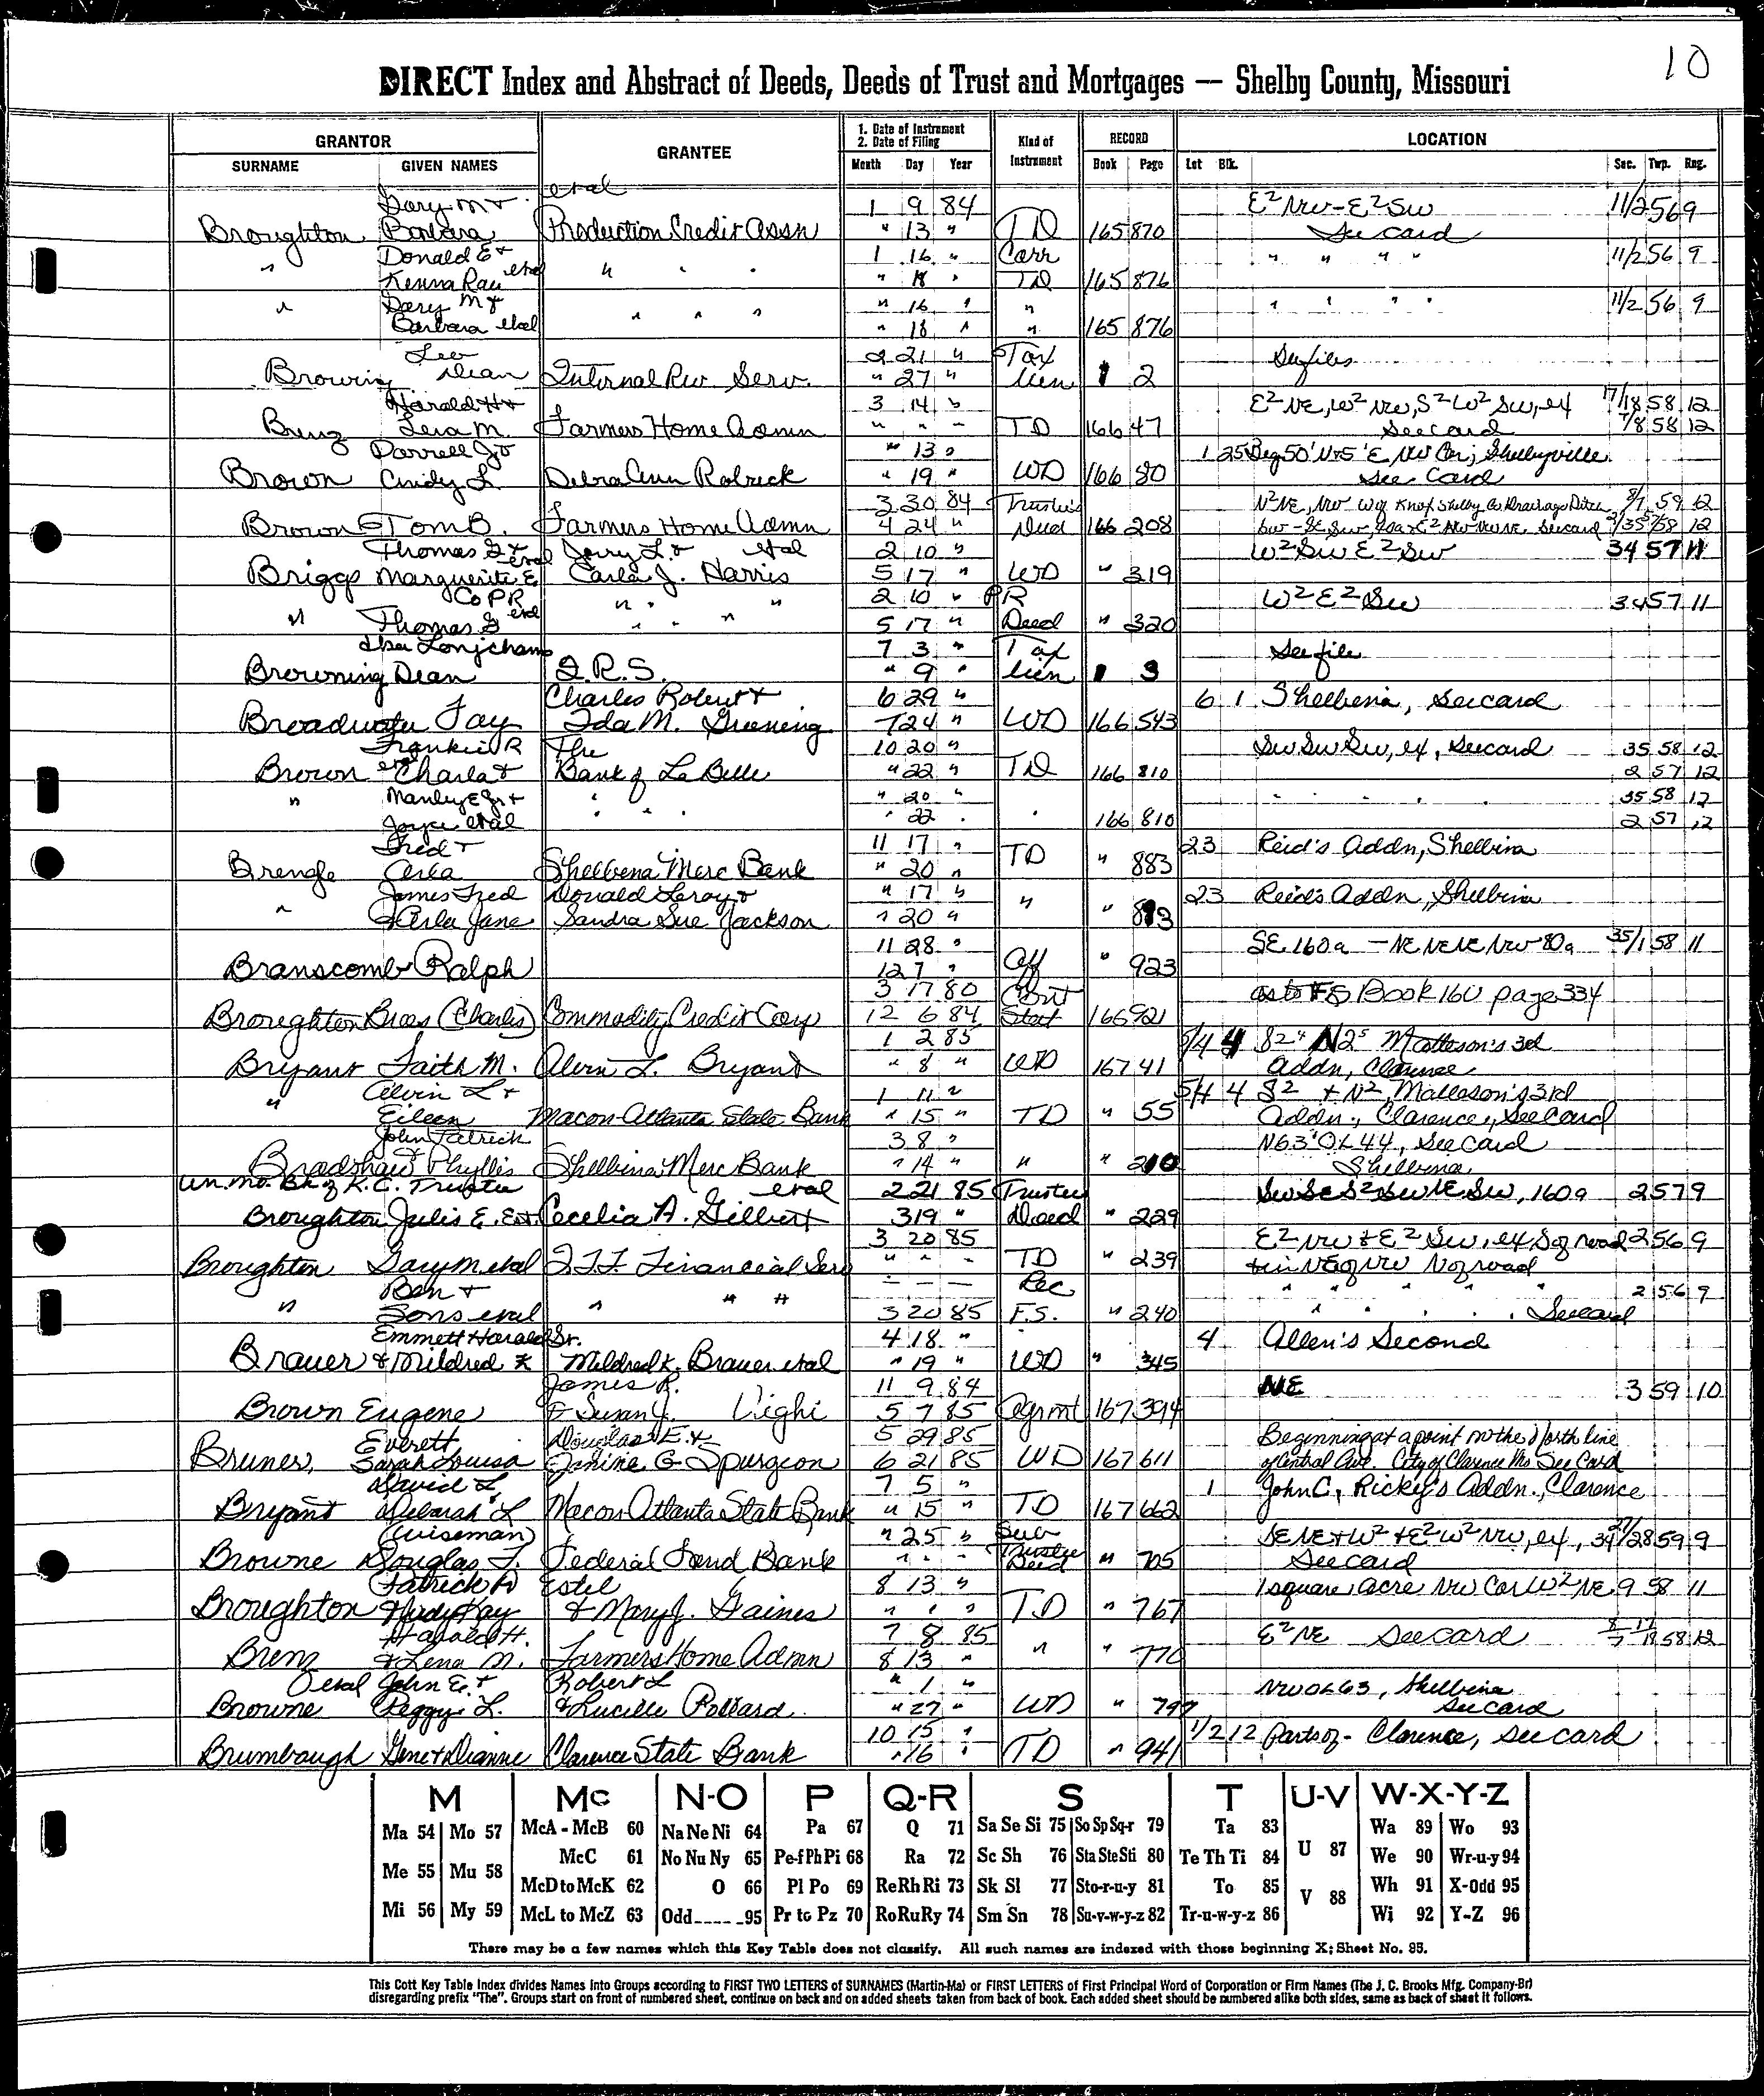 10
DIRECT Index and Abstract of Deeds, Deeds of Trust and Mortgages — Shelby County, Missouri
GRANTOR GRANTEE 1. Date of Instrument 2. Date of Filing Kind of Instrument RECORD LOCATION
SURNAME GIVEN NAMES Month Day Year Book Page Lot Blk. Sec. Twp. Rng.
Gary M & etal 1 9 84 E² NW - E² SW 11/2 56 9
Broughton Barbara Production Credit Assn " 13 " TD 165 870 See card
Donald E & 1 16 " Corr " " " " 11/2 56 9
" Kenna Rae etal " " " " 18 " TD 165 876
" Gary M & " " " " 16 " " " " " " 11/2 56 9
Barbara etal " 18 " " 165 876
Leo 2 21 " Tax See files
Browning Dean Internal Rev Serv. " 27 " Lien 1 2
Harold H & 3 14 " E² NE, W² NW, S² W² SW, ex 17/18 58 12
Brenz Lena M. Farmers Home Admn " - - TD 166 47 See card 7/8 58 12
Darrell J & " 13 " 1 25 Beg 50' N & 5' E, NW Cor; Shelbyville
Brown Cindy L. Debra Ann Rabeck " 19 " WD 166 80 See Card
3 30 84 Trustee's N² NE, NW Knox Shelby Co Drainage Ditch 59 12
Brown Tom B. Farmers Home Admn 4 24 " Deed 166 208 See card 12
Thomas G & etal Jerry L. & etal 2 10 " W² SW E² SW 34 57 11
Briggs Marguerite E. Carla J. Harris 5 17 " WD " 319
Co PR " " " 2 10 " PR W² E² SW 34 57 11
" Thomas G etal " " " 5 17 " Deed " 320
Longchamp 7 3 " Tax See file
Browning Dean I.R.S. " 9 " Lien 1 3
Charles Robert & 6 29 " 6 1 Shelbina, See card
Broadwater Fay Ida M. Greening 7 24 " WD 166 543
Frankie R The 10 20 " SW SW SW, ex, See card 35 58 12
Brown etal Charla & Bank of La Belle " 22 " TD 166 810 2 57 12
" Manley E Jr & " " " " 20 " " " " " 35 58 12
Joyce etal " 22 " " 166 810 2 57 12
Fred & 11 17 " 23 Reid's Addn, Shelbina
Brengle Arla Shelbina Merc Bank " 20 " TD " 883
James Fred Donald Leroy & " 17 " " 23 Reid's Addn, Shelbina
" & Arla Jane Sandra Sue Jackson " 20 " "
11 28 " SE 160a - NE NE NE NW 80a 35/1 58 11
Branscomb Ralph 12 7 " Aff " 923
3 17 80 Cont as to FS Book 160 page 334
Broughton Bros (Charles) Commodity Credit Corp 12 6 84 Stat 166 921
1 2 85 5/4 4 Matteson's 3rd
Bryant Faith M. Alvin L. Bryant " 8 " WD 167 41 Addn, Clarence
" Alvin L & 1 11 " 5/4 4 S² & N² Matteson's 3rd
Eileen Macon-Atlanta State Bank " 15 " TD " 55 Addn., Clarence, See Card
John Patrick 3 8 " N63' OL 44, See Card
Bradshaw & Phyllis Shelbina Merc Bank " 14 " " " 210 Shelbina
Un. Mo. Bk of K.C. Trustee etal 2 21 85 Trustee SW SE S² SW NE SW, 160a 2 57 9
Broughton Julis E. Est. Cecelia A. Gilbert 3 19 " Deed " 229
3 20 85 E² NW & E² SW, ex S of road 2 56 9
Broughton Gary M etal ITT Financial Serv " " - TD " 239 N of road
Ben & - - - Rec " " " " 2 56 9
" Sons etal " " " 3 20 85 F.S. " 240 " " " See card
Emmett Harold Sr. 4 18 " 4 Allen's Second
Brauer & Mildred K Mildred K. Brauer etal " 19 " WD " 345
James R. 11 9 84 NE 3 59 10
Brown Eugene & Susan J. Vighi 5 7 85 Agrmt 167 394
Everett Douglas E. & 5 29 85 Beginning at a point on the North line
Bruner, Sarah Louisa Janine G Spurgeon 6 21 85 WD 167 611 of Central Ave. City of Clarence Mo See Card
David L 7 5 " 1 John C, Ricky's Addn., Clarence
Bryant Deborah L Macon-Atlanta State Bank " 15 " TD 167 662
(Wiseman) " 25 " Sub SE NE & W² & E² W² NW, ex, 34 27/28 59 9
Browne Douglas F. Federal Land Bank " " - Trustee Deed " 705 See card
Patrick D Estel 8 13 " 1 square acre NW Cor W² NE 9 58 11
Broughton Kay & Mary J. Gaines " " " TD " 767
Harold H. 7 8 85 E² NE See card 58 12
Brenz & Lena M. Farmers Home Admn 8 13 " " " 770
etal John E. & Robert L " 1 " NW OL 63, Shelbina
Browne Peggy L. & Lucille Pollard " 27 " WD " 797 See card
10 15 " 1/2 12 Parts of - Clarence, See card
Brumbaugh Gene & Dianne Clarence State Bank " 16 " TD " 941
M Mc N-O P Q-R S T U-V W-X-Y-Z
Ma 54 Mo 57 McA - McB 60 Na Ne Ni 64 Pa 67 Q 71 Sa Se Si 75 So Sp Sq-r 79 Ta 83 U 87 Wa 89 Wo 93
Me 55 Mu 58 McC 61 No Nu Ny 65 Pe-f Ph Pi 68 Ra 72 Sc Sh 76 Sta Ste Sti 80 Te Th Ti 84 We 90 Wr-u-y 94
McD to McK 62 O 66 Pl Po 69 Re Rh Ri 73 Sk Sl 77 Sto-r-u-y 81 To 85 V 88 Wh 91 X-Odd 95
Mi 56 My 59 McL to McZ 63 Odd-----95 Pr to Pz 70 Ro Ru Ry 74 Sm Sn 78 Su-v-w-y-z 82 Tr-u-w-y-z 86 Wi 92 Y-Z 96
There may be a few names which this Key Table does not classify. All such names are indexed with those beginning X; Sheet No. 95.
This Cott Key Table Index divides Names into Groups according to FIRST TWO LETTERS of SURNAMES (Martin-Ma) or FIRST LETTERS of First Principal Word of Corporation or Firm Names (The J. C. Brooks Mfg. Company-Br)
disregarding prefix "The". Groups start on front of numbered sheet, continue on back and on added sheets taken from back of book. Each added sheet should be numbered alike both sides, same as back of sheet it follows.